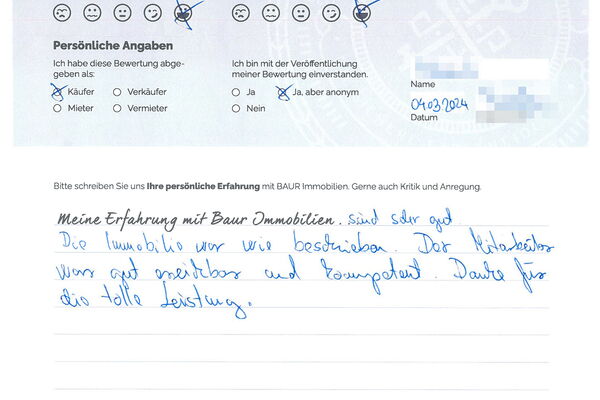 Persönliche Angaben
Ich habe diese Bewertung abge-
geben als:
Käufer
Verkäufer
Mieter
Vermieter
Ich bin mit der Veröffentlichung
meiner Bewertung einverstanden.
Ja
Ja, aber anonym
Nein
Name
04.03.2024
Datum
Bitte schreiben Sie uns Ihre persönliche Erfahrung mit BAUR Immobilien. Gerne auch Kritik und Anregung.
Meine Erfahrung mit Baur Immobilien. sind sehr gut
Die Immobilie war wie beschrieben. Der Mitarbeiter
war gut erreichbar und kompetent. Danke für
die tolle Leistung.